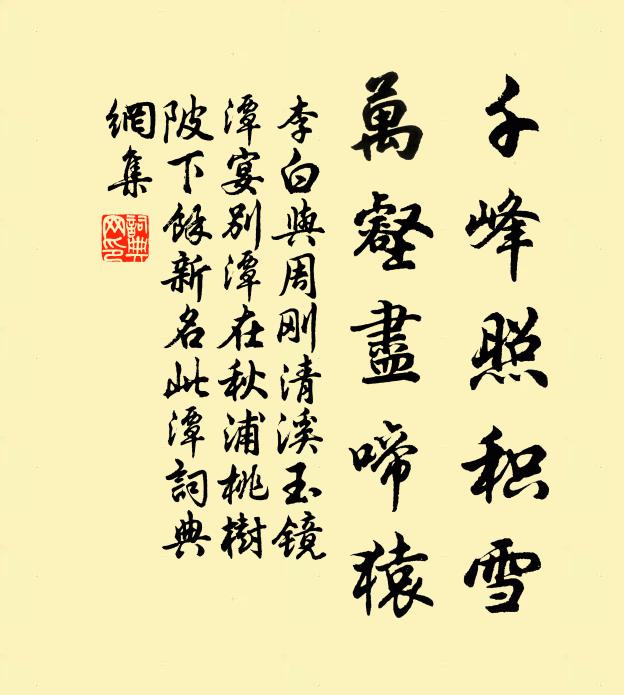 千峰照积雪
萬壑盡啼猿
李白與周刚清溪玉镜
潭宴别潭在秋浦桃樹
陂下餘新名此潭詞典
網集
詞典
网印